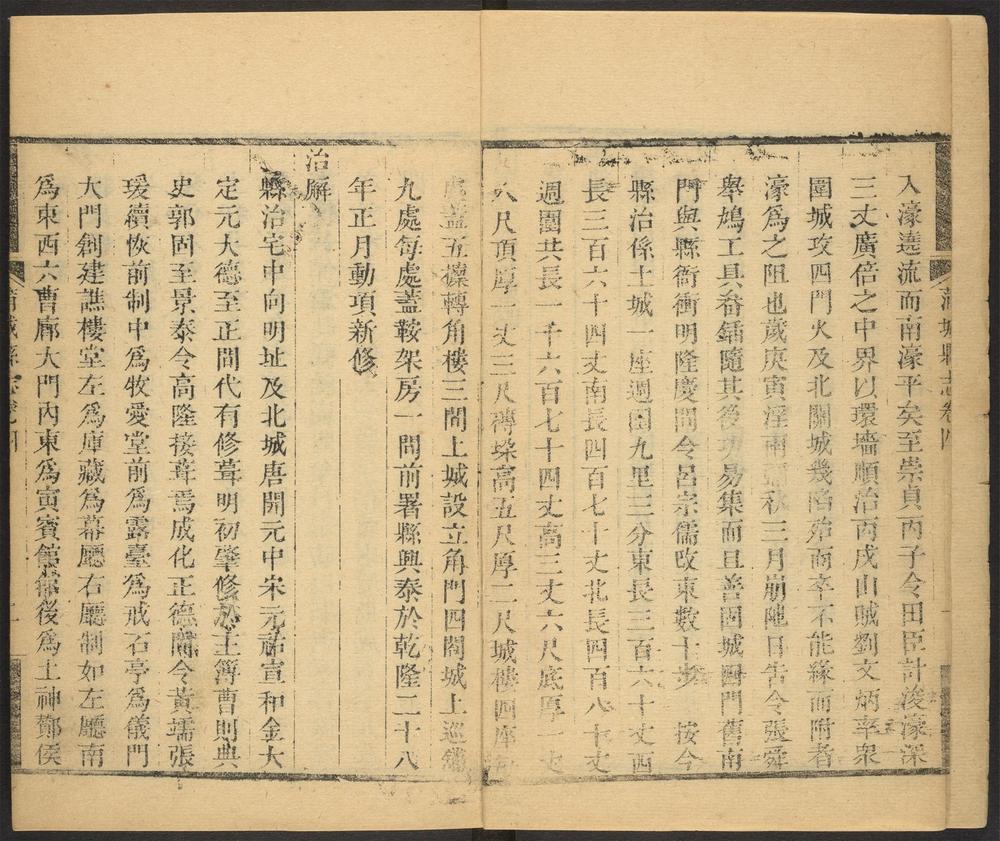 蒲城縣志卷四
入濠遶流而南濠平矣至崇貞丙子令田臣計浚濠深
三丈廣倍之中界以環墻順治丙戌山賊劉文炳率衆
圍城攻四門火及北關城幾陷殆而卒不能緣而附者
濠爲之阻也歲庚寅淫雨秋三月崩陁日告令張舜
舉鳩工具畚鍤隨其後功易集而且善固城四門舊南
門與縣衙衝明隆慶間令呂宗儒改東數十步 按今
縣治係土城一座週圍九里三分東長三百六十丈西
長三百六十四丈南長四百七十丈北長四百八十丈
週圍共長一千六百七十四丈高三丈六尺底厚
八尺頂厚一丈三尺磚垛高五尺厚二尺城樓四座
處蓋五檁轉角樓三間上城設立角門四閤城上巡鋪
九處每處蓋鞍架房一間前署縣興泰於乾隆二十八
年正月動項新修
治廨
縣治宅中向明址及北城唐開元中宋元祐宣和金大
定元大德至正間代有修葺明初肇修於主簿曹則典
史郭固至景泰令高隆接葺焉成化正德間令黃壖張
瑗續恢前制中爲牧愛堂前爲露臺爲戒石亭爲儀門
大門創建譙樓堂左爲庫藏爲幕廳右廳制如左廳南
爲東西六曹廊大門內東爲寅賓館後爲土神酇侯